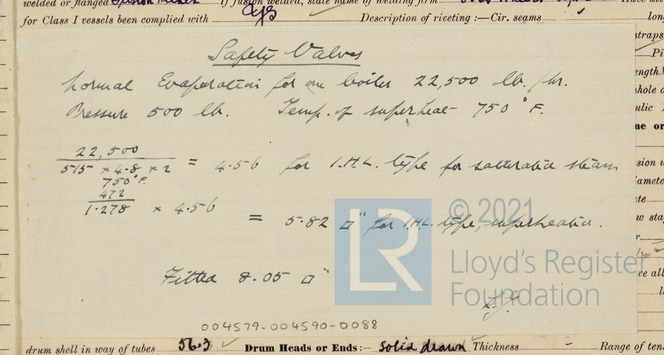 welded or flanged Fusion Welded If fusion welded, state name of welding firm
for Class I vessels been complied with Yes Description of riveting :—Cir. seams
Safety Valves
Normal Evaporation for one boiler 22,500 lb./hr.
Pressure 500 lb. Temp. of superheat 750°F.
22,500
515 × 4.8 × 2 = 4.56 for I.H.L. type for saturated steam
750°F.
472
1.278 × 4.56 = 5.82 □" for I.H.L. type, superheated.
Fitted 8.05 □"
004579-004590-0088
LR © 2021
Lloyd's Register
Foundation
drum shell in way of tubes 56.3 Drum Heads or Ends :— Solid drawn Thickness Range of ten